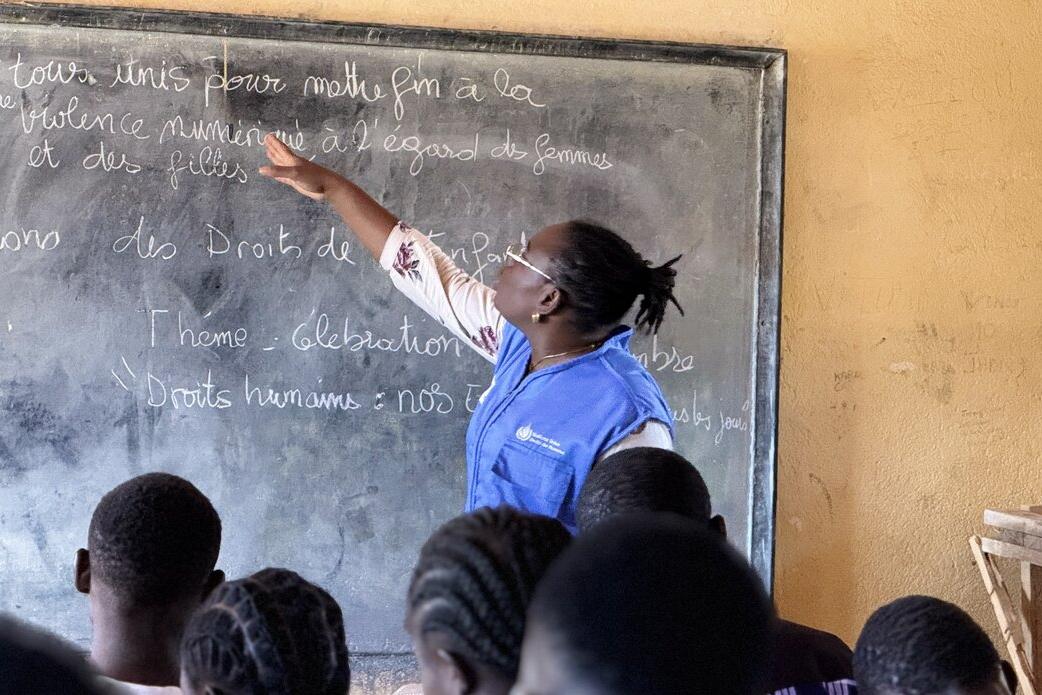 tous unis pour mettre fin à la
violence numérique à l'égard des femmes
et des filles
ons des Droits de enfan
Théme - Célébration mbre
"Droits humains : nos
Nations Unies
Droits de l'Homme